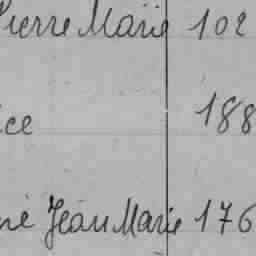 Pierre Marie 102
ice 188
né Jean Marie 176